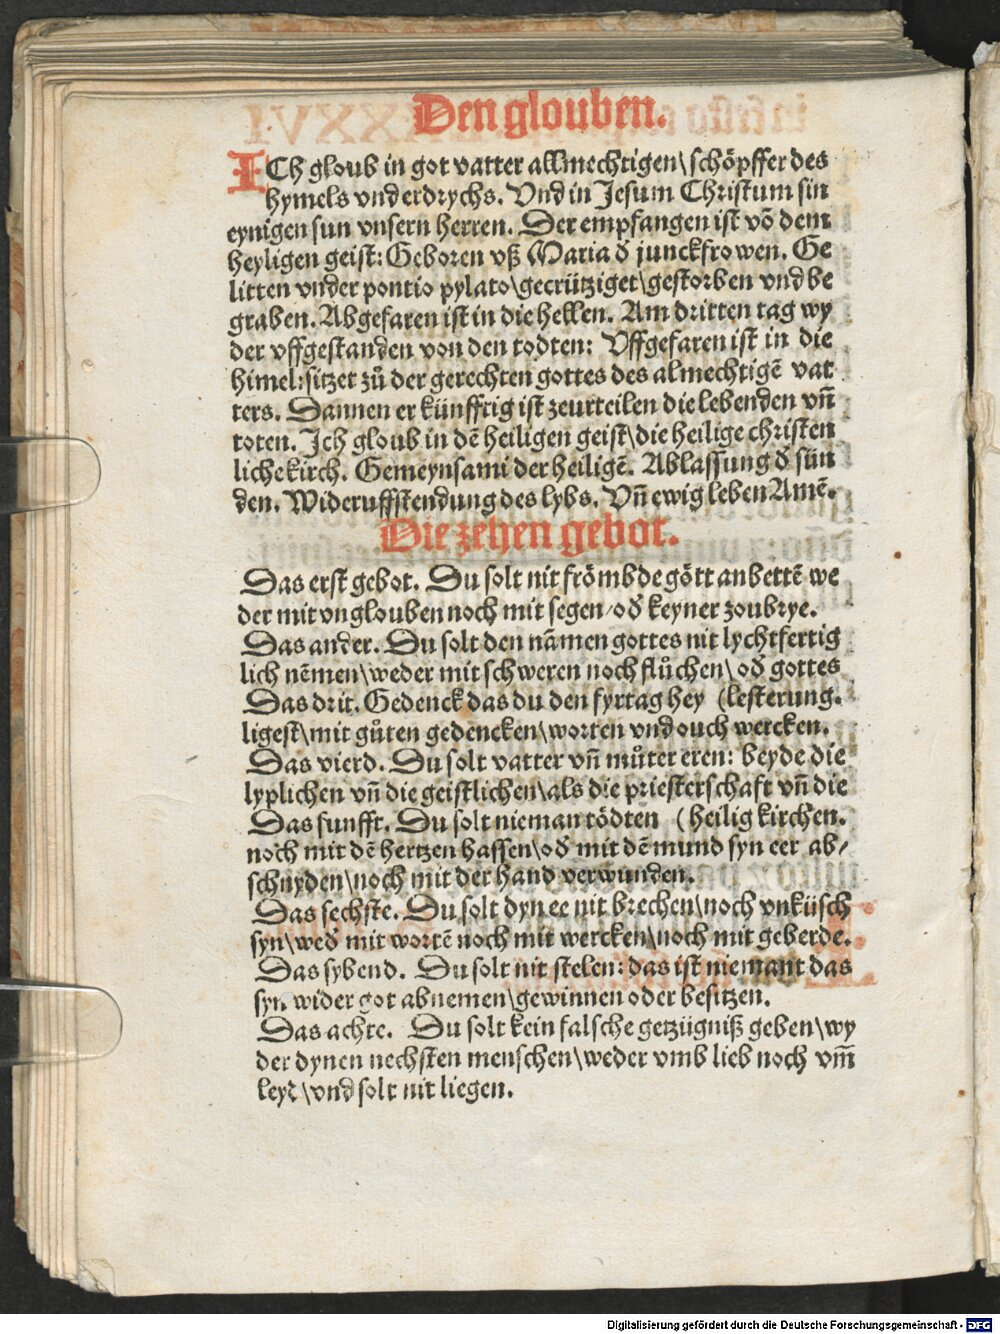 Den glouben.
ICh gloub in got vatter allmechtigen\schöpffer des
hymels vnd erdrychs. Vnd in Jesum Christum sin
eynigen sun vnsern herren. Der empfangen ist võ dem
heyligen geist: Geboren vß Maria đ junckfrowen. Ge
litten vnder pontio pylato\gecrütziget\gestorben vnd be
graben. Abgefaren ist in die hellen. Am dritten tag wy
der vffgestanden von den todten: Vffgefaren ist in die
himel: sitzet zů der gerechten gottes des almechtigẽ vat
ters. Dannen er künfftig ist zeurteilen die lebenden vñ
toten. Ich gloub in dẽ heiligen geist\die heilige christen
liche kirch. Gemeynsami der heiligẽ. Ablassung đ sün
den. Wideruffstendung des lybs. Vñ ewig leben Amẽ.
Die zehen gebot.
Das erst gebot. Du solt nit frömbde gött anbettẽ we
der mit vnglouben noch mit segen/ođ keyner zoubrye.
Das ander. Du solt den nãmen gottes nit lychtfertig
lich nẽmen\weder mit schweren noch flůchen\ođ gottes
Das drit. Gedenck das du den fyrtag hey (lesterung.
ligest\mit gůten gedencken\worten vnd ouch wercken.
Das vierd. Du solt vatter vñ můter eren: beyde die
lyplichen vñ die geistlichen\als die priesterschaft vñ die
Das funfft. Du solt nieman tödten (heilig kirchen.
noch mit dẽ hertzen hassen\ođ mit dẽ mund syn eer ab/
schnyden\noch mit der hand verwunden.
Das sechste. Du solt dyn ee nit brechen\noch vnküsch
syn\weđ mit wortẽ noch mit wercken\noch mit geberde.
Das sybend. Du solt nit stelen: das ist niemant das
syn wider got abnemen\gewinnen oder besitzen.
Das achte. Du solt kein falsche getzügniß geben\wy
der dynen nechsten menschen\weder vmb lieb noch vm̃
leyt\vnd solt nit liegen.
Digitalisierung gefördert durch die Deutsche Forschungsgemeinschaft - DFG